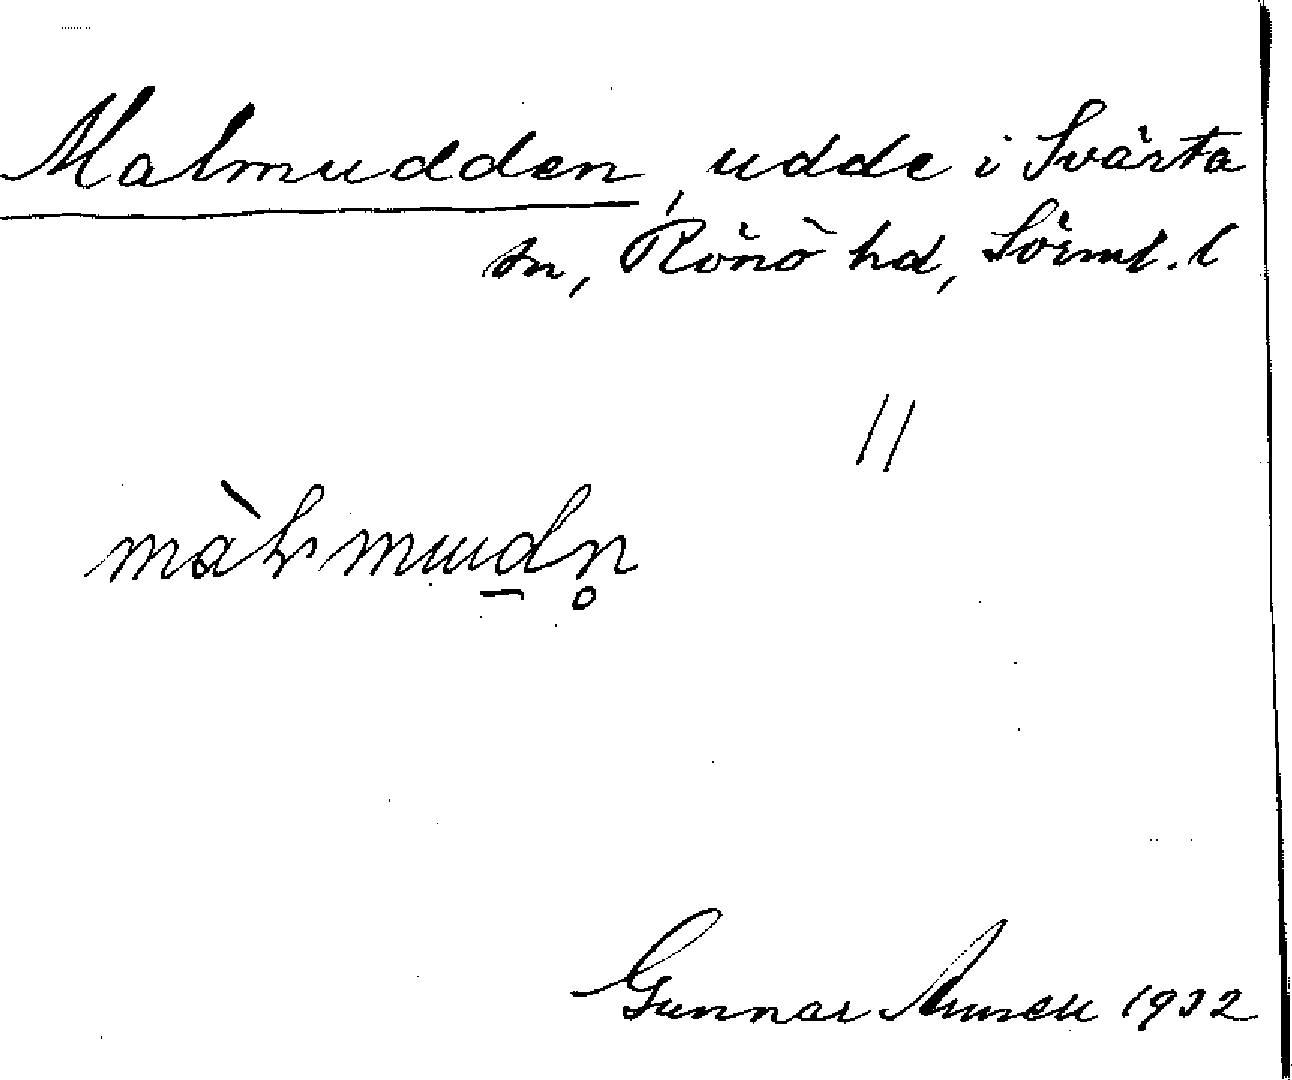 Malmudden, udde i Svärta
sn, Rönö hd, Sörml. l
//
Gunnar 1932